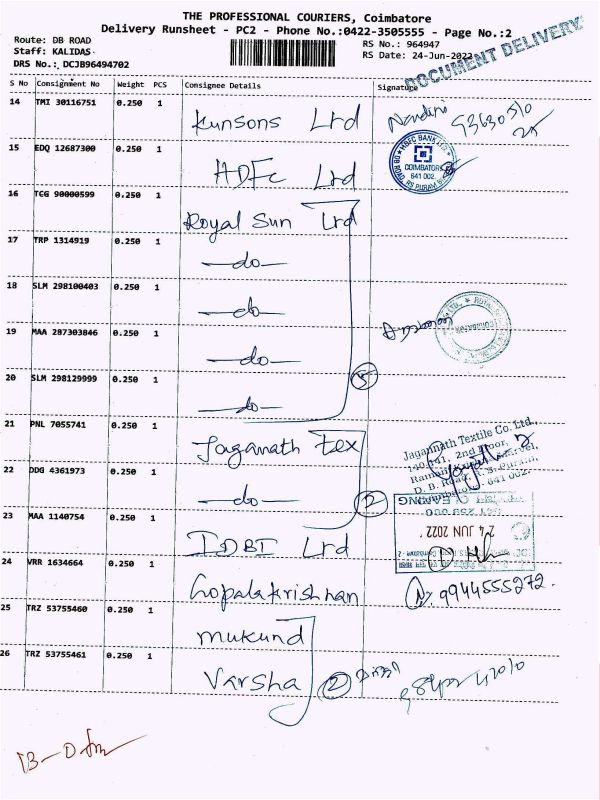 THE PROFESSIONAL COURIERS, Coimbatore
Delivery Runsheet - PC2 - Phone No.:0422-3505555 - Page No.:2
Route: DB ROAD
RS No.: 964947
Staff: KALIDAS
RS Date: 24-Jun-2022
DRS No.: DCJB96494702
DOCUMENT DELIVERY
S No Consignment No Weight PCS Consignee Details Signature
14 TMI 30116751 0.250 1 Kunsons Ltd Nandini
15 EDQ 12687300 0.250 1 HDFC Ltd
HDFC BANK LTD
COIMBATORE
641 002
16 TCG 90000599 0.250 1 Royal Sun Ltd
17 TRP 1314919 0.250 1 —do—
18 SLM 298100403 0.250 1 —do—
19 MAA 287303846 0.250 1 —do—
20 SLM 298129999 0.250 1 —do— 5
21 PNL 7055741 0.250 1 Jaganath tex
Jagannath Textile Co. Ltd.,
140-141, 2nd Floor,
D. B. Road, R. S. Puram,
641 002.
22 DDG 4361973 0.250 1 —do— 2
23 MAA 1140754 0.250 1 IDBI Ltd
24 JUN 2022
24 VRR 1634664 0.250 1 Gopalakrishnan 9944555272
25 TRZ 53755460 0.250 1 mukund
26 TRZ 53755461 0.250 1 Varsha 2